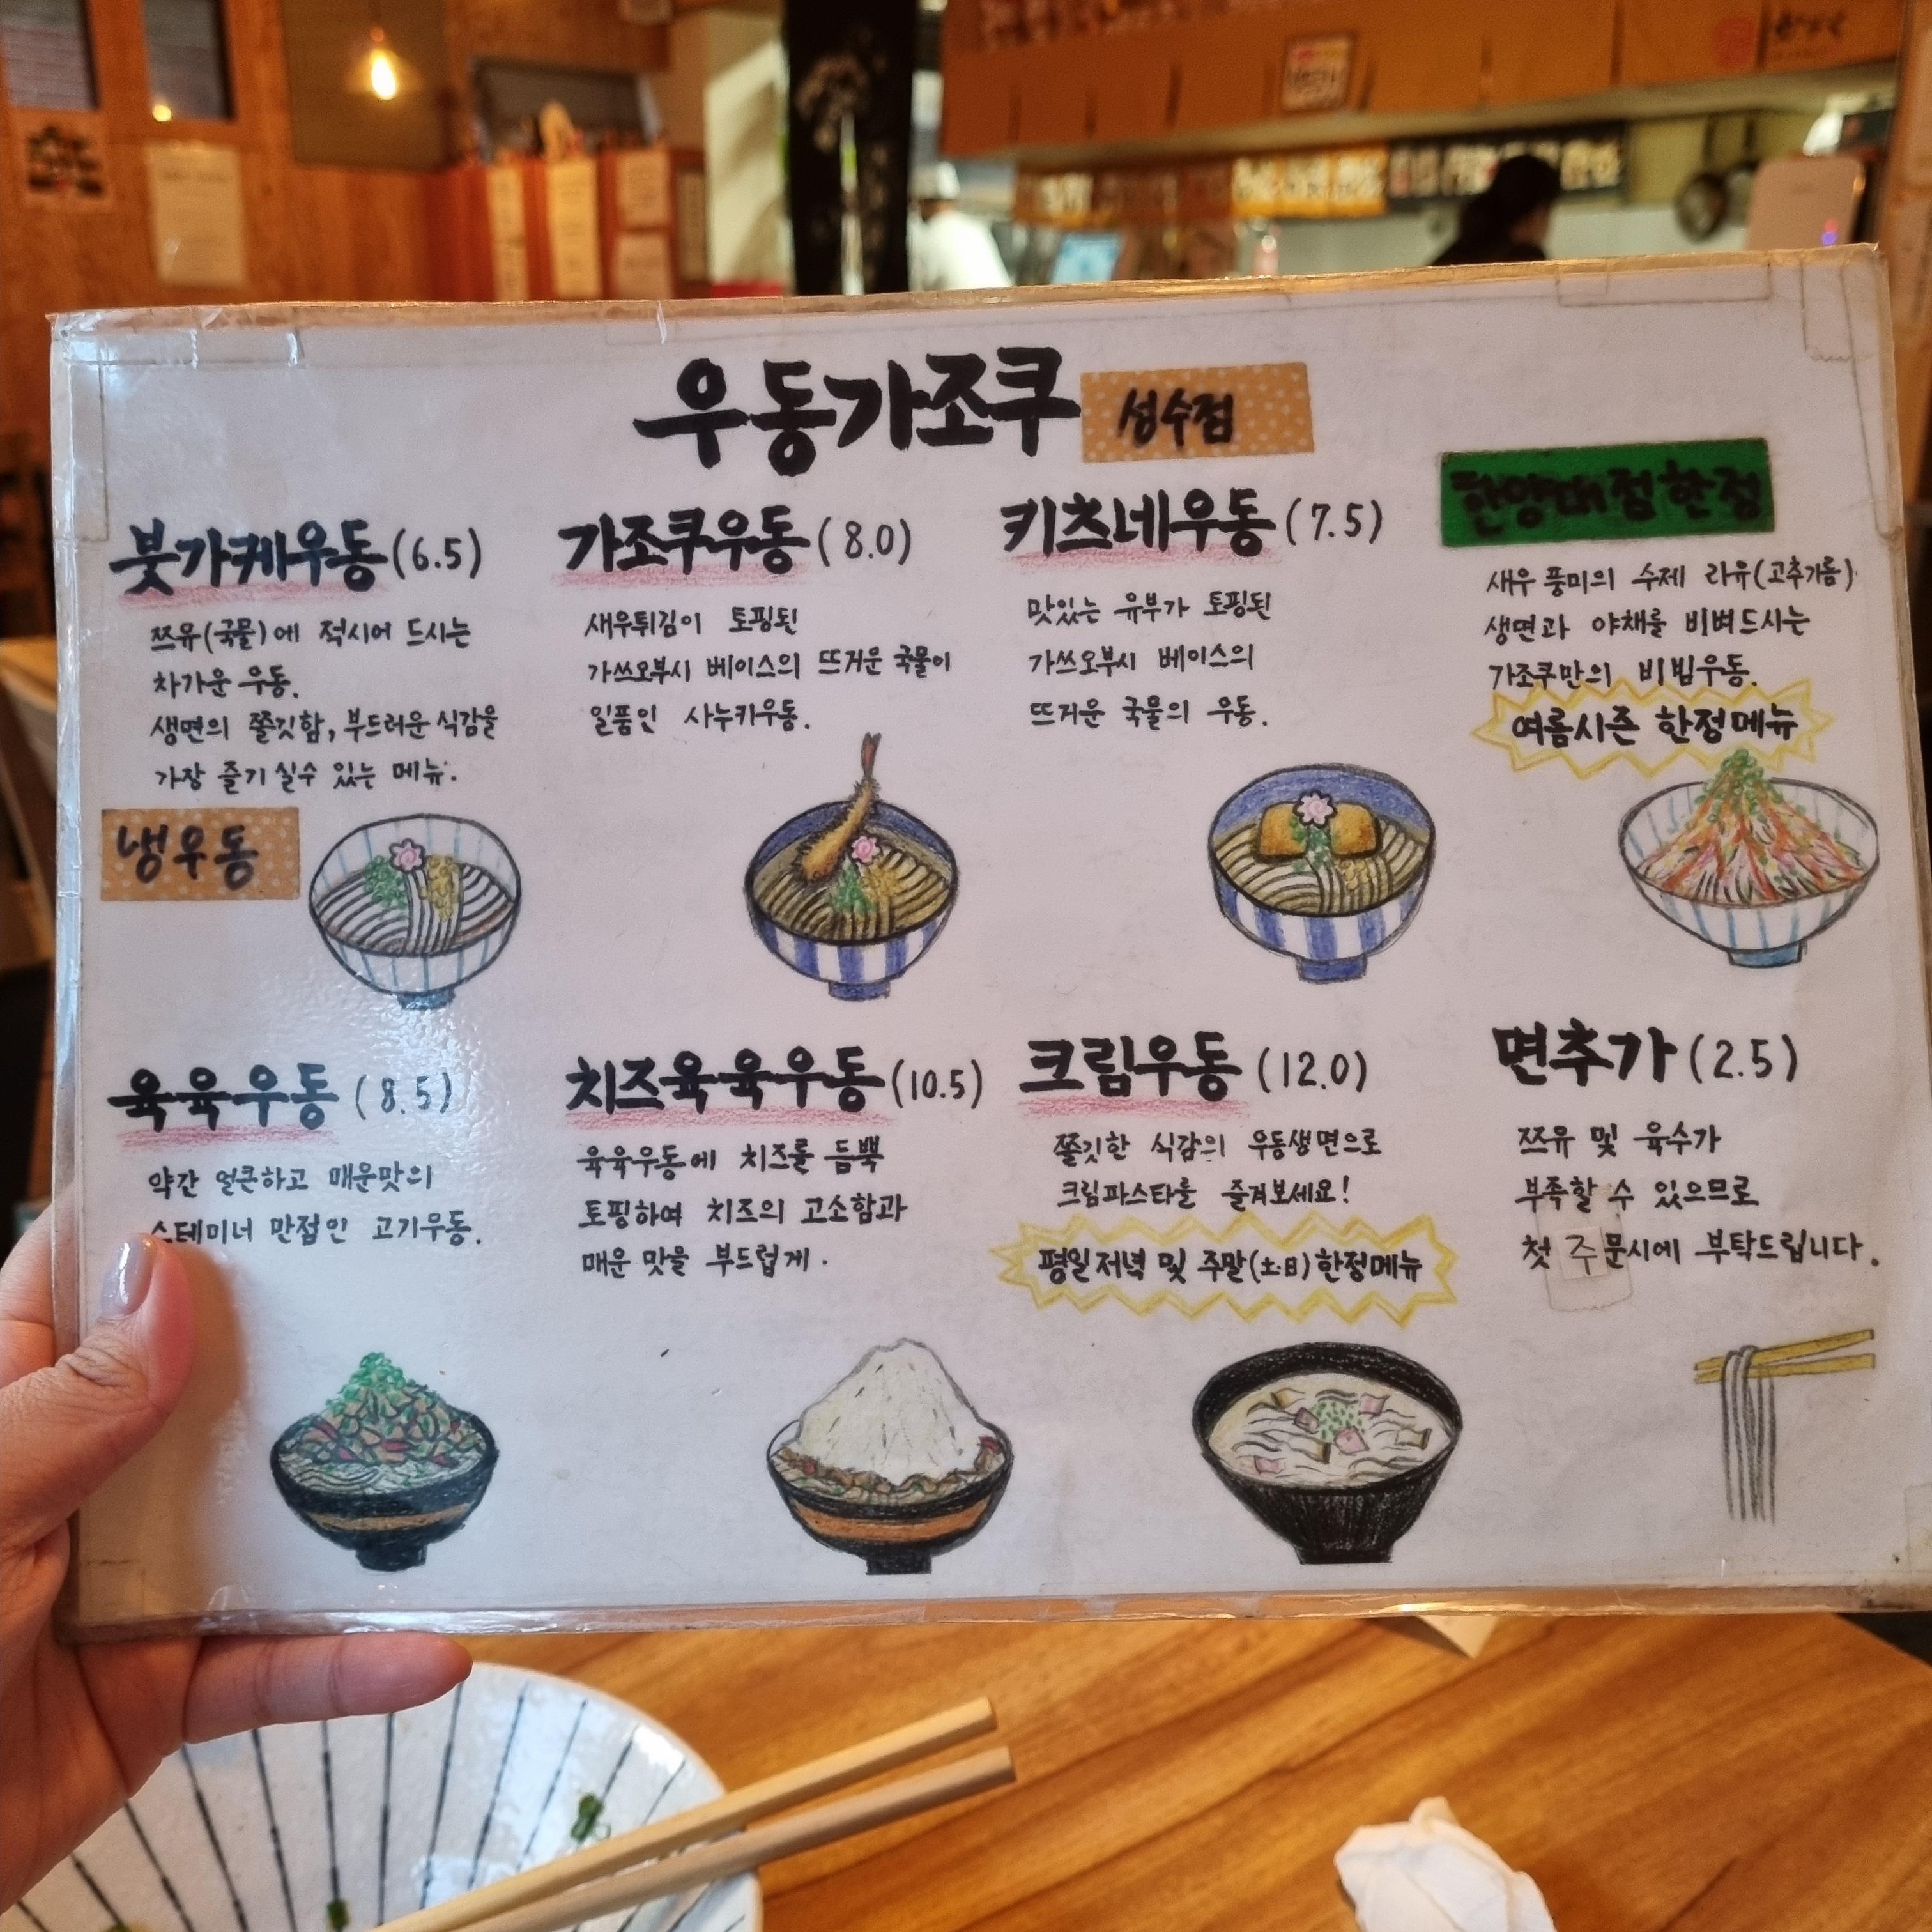 우동가조쿠 성수점
붓가케우동(6.5)
쯔유(국물)에 적시어 드시는
차가운 우동.
생면의 쫄깃함, 부드러운 식감을
가장 즐기실수 있는 메뉴.
냉우동
가조쿠우동(8.0)
새우튀김이 토핑된
가쓰오부시 베이스의 뜨거운 국물이
일품인 사누카우동.
키츠네우동(7.5)
맛있는 유부가 토핑된
가쓰오부시 베이스의
뜨거운 국물의 우동.
한양대점한정
새우 풍미의 수제 라유(고추기름)
생면과 야채를 비벼드시는
가조쿠만의 비빔우동.
여름시즌 한정메뉴
육육우동(8.5)
약간 얼큰하고 매운맛의
스테미너 만점인 고기우동.
치즈육육우동(10.5)
육육우동에 치즈를 듬뿍
토핑하여 치즈의 고소함과
매운 맛을 부드럽게.
크림우동(12.0)
쫄깃한 식감의 우동생면으로
크림파스타를 즐겨보세요!
평일저녁 및 주말(土日)한정메뉴
면추가(2.5)
쯔유 및 육수가
부족할 수 있으므로
첫 주문시에 부탁드립니다.